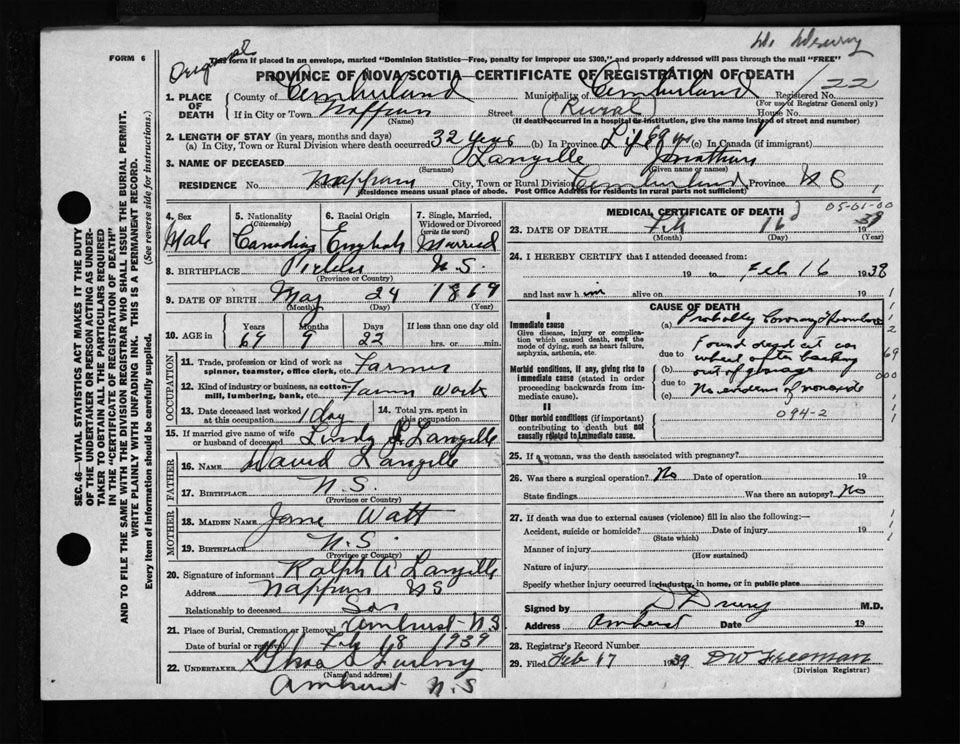 Original
Dr Drury
FORM 6
This form if placed in an envelope, marked "Dominion Statistics—Free, penalty for improper use $300," and properly addressed will pass through the mail "FREE"
PROVINCE OF NOVA SCOTIA—CERTIFICATE OF REGISTRATION OF DEATH
122
1. PLACE OF DEATH
County of Cumberland Municipality of Cumberland Registered No.
(For use of Registrar General only)
If in City or Town Nappan (Name) Street (Rural) House No.
(If death occurred in a hospital or institution, give the name instead of street and number)
2. LENGTH OF STAY (in years, months and days)
(a) In City, Town or Rural Division where death occurred 32 years (b) In Province Life 69 yrs (c) In Canada (if immigrant)
3. NAME OF DECEASED Langille Jonathan
(Surname) (Given name or names)
RESIDENCE No. Street Nappan City, Town or Rural Division Cumberland Province N S
(Residence means usual place of abode. Post Office Address for residents in rural parts not sufficient)
4. Sex Male
5. Nationality (Citizenship) Canadian
6. Racial Origin English
7. Single, Married, Widowed or Divorced (write the word) Married
8. BIRTHPLACE N.S.
(Province or Country)
9. DATE OF BIRTH May 24 1869
(Month) (Day) (Year)
10. AGE in Years 69 Months 9 Days 22 If less than one day old hrs. or min.
OCCUPATION
11. Trade, profession or kind of work as spinner, teamster, office clerk, etc. Farmer
12. Kind of industry or business, as cotton-mill, lumbering, bank, etc. Farm Work
13. Date deceased last worked at this occupation 1 day
14. Total yrs. spent in this occupation
15. If married give name of wife or husband of deceased Langille
FATHER
16. NAME David Langille
17. BIRTHPLACE N.S.
(Province or Country)
MOTHER
18. MAIDEN NAME Jane Watt
19. BIRTHPLACE N.S.
(Province or Country)
20. Signature of informant Ralph A Langille
Address Nappan N S
Relationship to deceased Son
21. Place of Burial, Cremation or Removal Amherst N.S.
Date of burial or removal Feb 18 1939
22. UNDERTAKER
(Name and address)
Amherst N.S
MEDICAL CERTIFICATE OF DEATH
05-01-00
23. DATE OF DEATH Feb 16 1939
(Month) (Day) (Year)
24. I HEREBY CERTIFY that I attended deceased from:
19 to Feb 16 1938
and last saw him alive on 19
CAUSE OF DEATH
I
Immediate cause
Give disease, injury or complication which caused death, not the mode of dying, such as heart failure, asphyxia, asthenia, etc.
(a) Probably Coronary Thrombosis
Morbid conditions, if any, giving rise to immediate cause (stated in order proceeding backwards from immediate cause).
due to Found dead at car
(b) wheel after backing
due to out of garage
(c) No evidence of monoxide
II
Other morbid conditions (if important) contributing to death but not causally related to immediate cause.
094-2
25. If a woman, was the death associated with pregnancy?
26. Was there a surgical operation? No Date of operation 19
State findings Was there an autopsy? No
27. If death was due to external causes (violence) fill in also the following:—
Accident, suicide or homicide? Date of injury 19
(State which)
Manner of injury
(How sustained)
Nature of injury
Specify whether injury occurred in industry, in home, or in public place
Signed by D Drury M.D.
Address Amherst Date 19
28. Registrar's Record Number
29. Filed Feb 17 1939 D W Freeman
(Division Registrar)
SEC. 46—VITAL STATISTICS ACT MAKES IT THE DUTY OF THE UNDERTAKER OR PERSON ACTING AS UNDERTAKER TO OBTAIN ALL THE PARTICULARS REQUIRED IN THE "CERTIFICATE OF REGISTRATION OF DEATH" AND TO FILE THE SAME WITH THE DIVISION REGISTRAR WHO SHALL ISSUE THE BURIAL PERMIT.
WRITE PLAINLY WITH UNFADING INK. THIS IS A PERMANENT RECORD.
Every item of information should be carefully supplied. (See reverse side for instructions.)